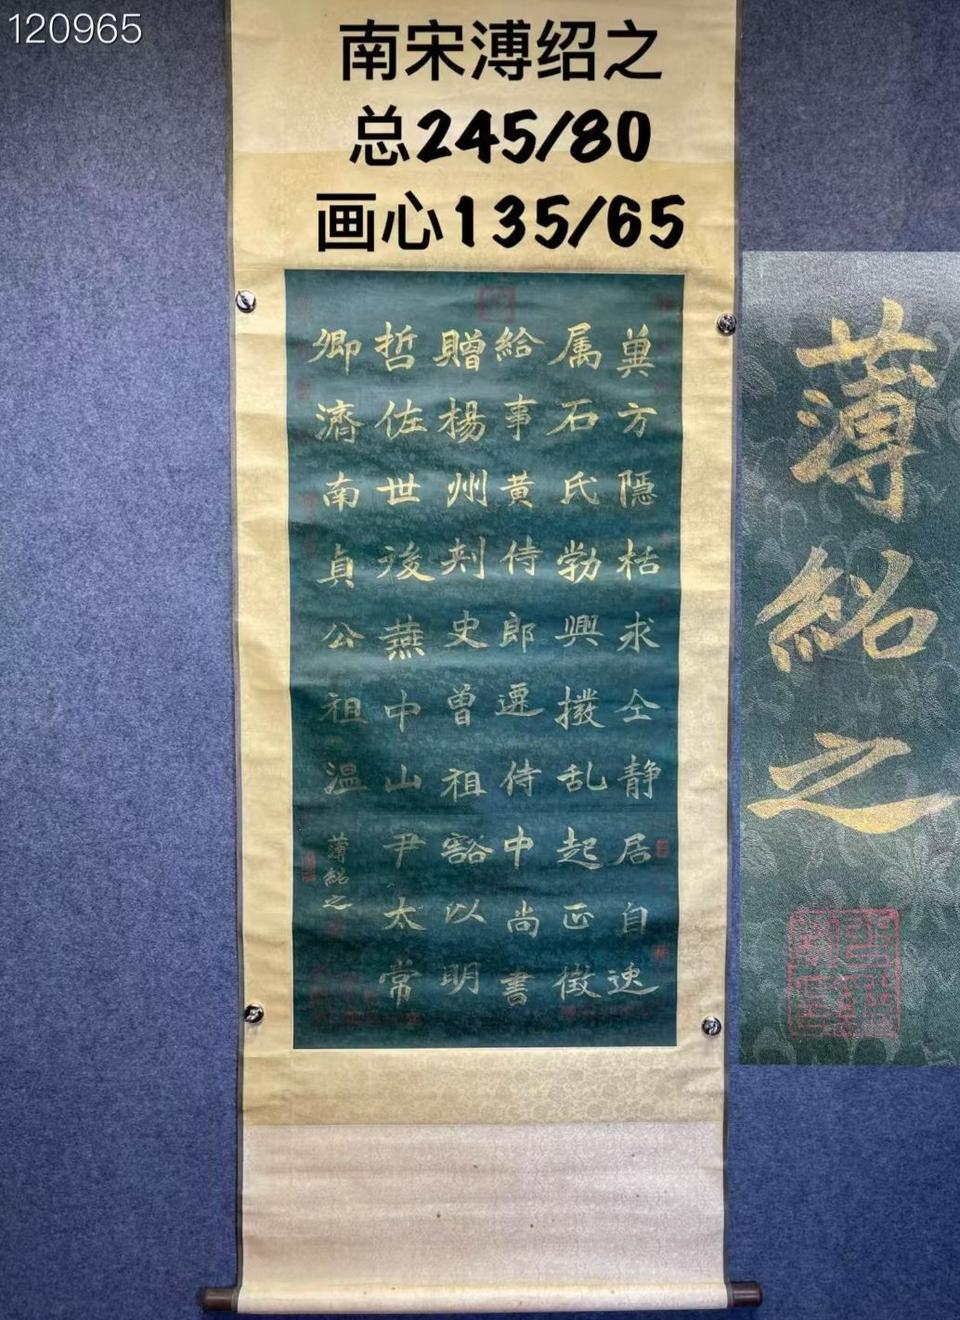 120965
南宋溥绍之
总245/80
画心135/65
巽方隐枯求仝静居自速
属石氏勃興撥乱起正徴
給事黄侍郎遷侍中尚書
贈楊州刾史曽祖豁以明
哲佐世後燕中山尹太常
卿濟南貞公祖温
薄紹之
薄紹之